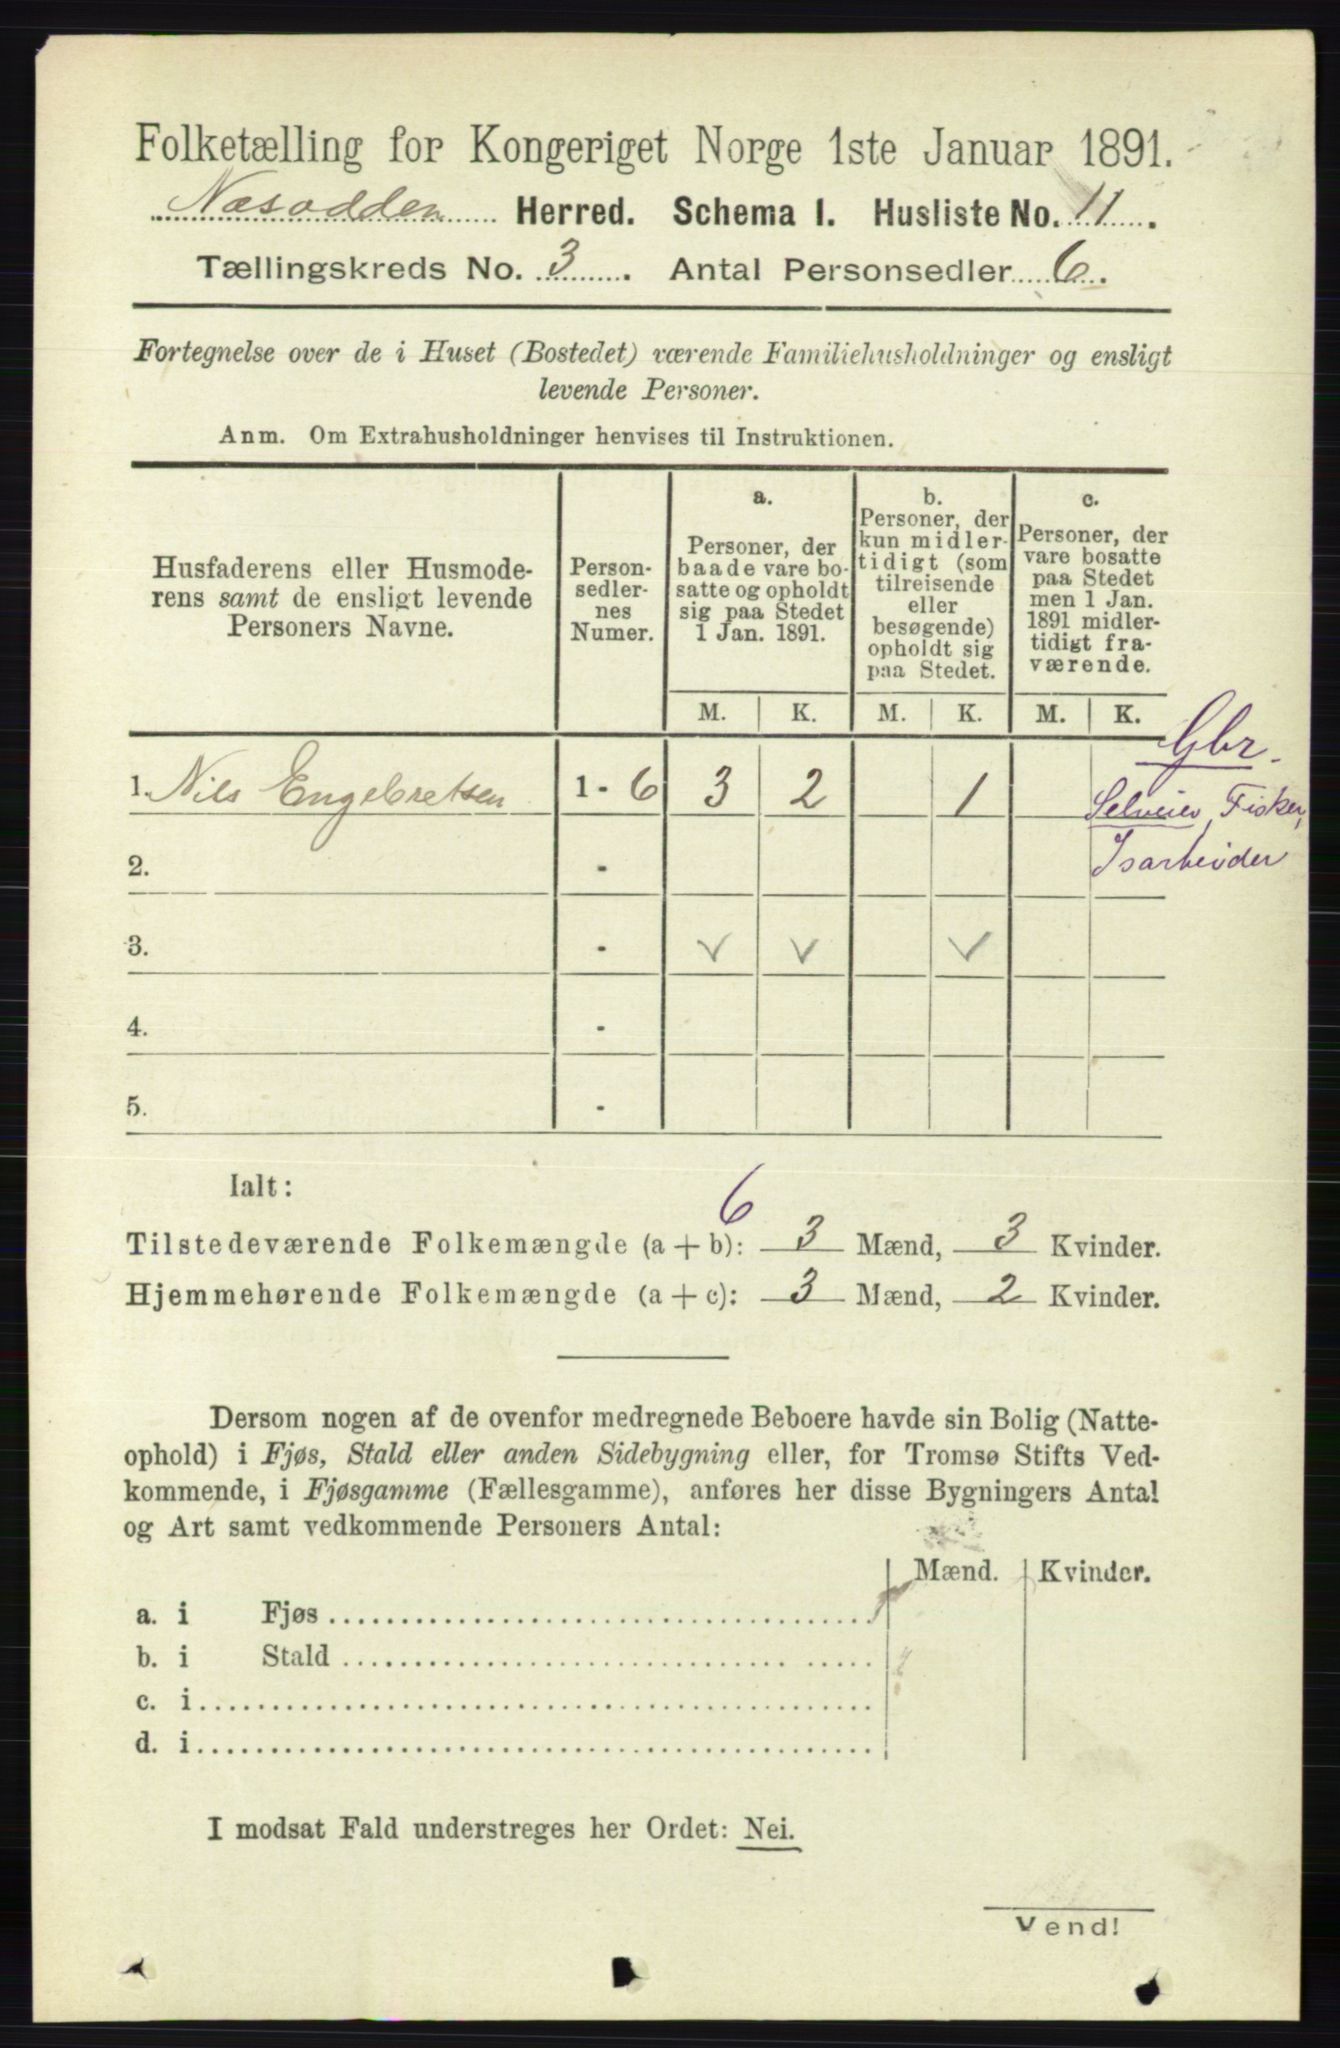 Folketælling for Kongeriget Norge 1ste Januar 1891.
Næsodden Herred. Schema I. Husliste No. 11.
Tællingskreds No. 3. Antal Personsedler 6.
Fortegnelse over de i Huset (Bostedet) værende Familiehusholdninger og ensligt
levende Personer.
Anm. Om Extrahusholdninger henvises til Instruktionen.
Husfaderens eller Husmode-
rens samt de ensligt levende
Personers Navne.
Person-
sedler-
nes
Numer.
a.
Personer, der
baade vare bo-
satte og opholdt
sig paa Stedet
1 Jan. 1891.
b.
Personer, der
kun midler-
tidigt (som
tilreisende
eller
besøgende)
opholdt sig
paa Stedet.
c.
Personer, der
vare bosatte
paa Stedet
men 1 Jan.
1891 midler-
tidigt fra-
værende.
M. K. M. K. M. K.
Gbr.
1. Nils Engebretsen 1 - 6 3 2 1
Selveier, Fisker,
Isarbeider
2. -
3. - ✓ ✓ ✓
4. -
5. -
Ialt:
6
Tilstedeværende Folkemængde (a + b): 3 Mænd, 3 Kvinder.
Hjemmehørende Folkemængde (a + c): 3 Mænd, 2 Kvinder.
Dersom nogen af de ovenfor medregnede Beboere havde sin Bolig (Natte-
ophold) i Fjøs, Stald eller anden Sidebygning eller, for Tromsø Stifts Ved-
kommende, i Fjøsgamme (Fællesgamme), anføres her disse Bygningers Antal
og Art samt vedkommende Personers Antal:
Mænd. Kvinder.
a. i Fjøs
b. i Stald
c. i
d. i
I modsat Fald understreges her Ordet: Nei.
Vend!